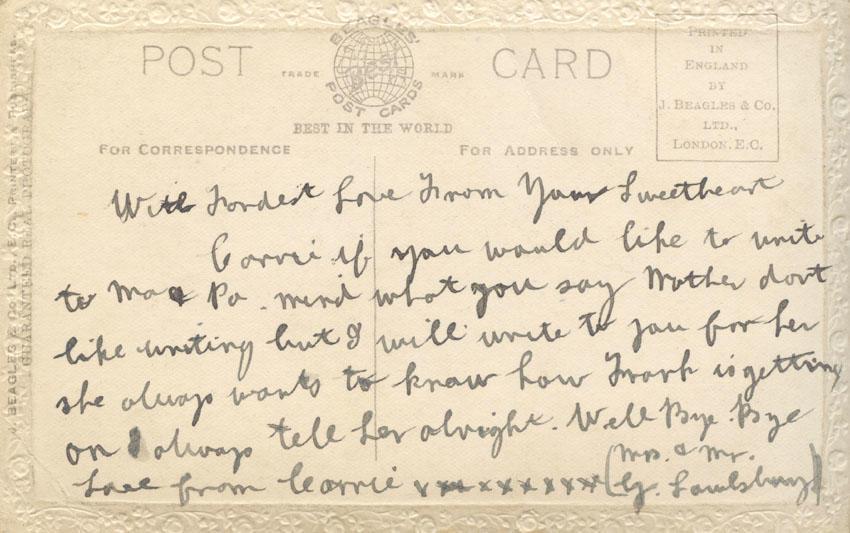 POST CARD
TRADE MARK
BEAGLES'
BEST
POST CARDS
BEST IN THE WORLD
FOR CORRESPONDENCE
FOR ADDRESS ONLY
PRINTED
IN
ENGLAND
BY
J. BEAGLES & CO.
LTD.,
LONDON. E.C.
With Fondest Love From Your Sweetheart
Carrie if you would like to write
to Ma & Pa. mind what you say Mother dont
like writing but I will write to you for her
she always wants to know how Frank is getting
on I always tell her alright. Well Bye Bye
Love from Carrie xxxxxxxxxx (Mrs. & Mr.
G.
J. BEAGLES & CO. LTD., E.C. PRINTERS & PUBLISHERS
GUARANTEED REAL PHOTOGRAPH